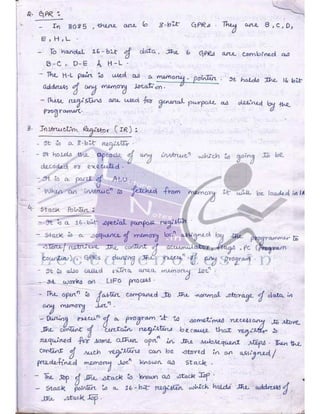 2. GPR :
- In 8085, there are 6 8-bit GPRs. They are B, C, D,
E, H, L.
- To handel 16-bit of data, the 6 GPRs are combined as
B-C, D-E & H-L.
- The H-L pair is used as a memory pointer. It holds the 16 bit
address of any memory location.
- These registers are used for general purpose as defined by the
programmer.
3. Instruction Register (IR) :
- It is a 8-bit register
- It holds the opcode of any instrucn which is going to be
decoded or executed.
- It is a part of ALU.
- When an instrucn is fetched from memory it will be loaded in IR
4. Stack Pointer :
- It is a 16-bit special purpose register
- Stack is a sequence of memory locn assigned by the programmer to
store/retrieve the content of accumulator, flags, PC (Program
Counter), GPRs during the execun of any program
- It is also called extra area memory locn
- It works on LIFO process.
- The opern is faster compared to the normal storage of data in
any memory locn.
- During execun of a program it is sometimes necessary to store
the content of certain registers because that register is
required for some other opern in the subsequent steps. Then the
content of such registers can be stored in an assigned/
predefined memory locn known as stack.
- The top of the stack is known as stack Top.
- Stack pointer is a 16-bit register which holds the address of
the stack top.